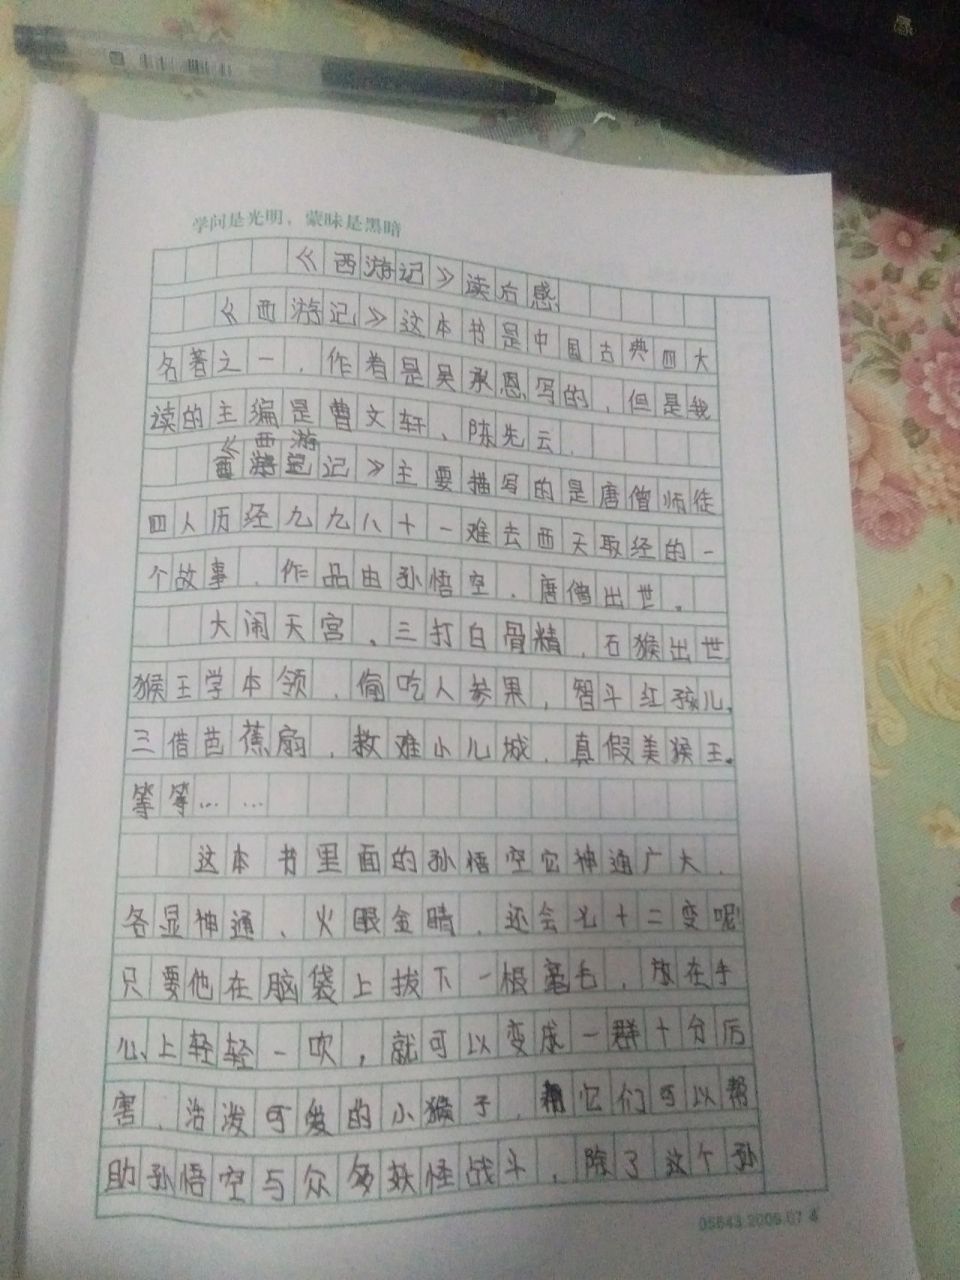 学问是光明，蒙昧是黑暗
《西游记》读后感
《西游记》这本书是中国古典四大
名著之一，作者是吴承恩写的，但是我
读的主编是曹文轩、陈先云，
《西游
记》主要描写的是唐僧师徒
四人历经九九八十一难去西天取经的一
个故事，作品由孙悟空，唐僧出世。
大闹天宫，三打白骨精，石猴出世
猴王学本领，偷吃人参果，智斗红孩儿，
三借芭蕉扇，救难小儿城，真假美猴王。
等等……
这本书里面的孙悟空它神通广大，
各显神通、火眼金睛，还会七十二变呢！
只要他在脑袋上拔下一根毫毛，放在手
心上轻轻一吹，就可以变成一群十分厉
害，活泼可爱的小猴子，它们可以帮
助孙悟空与众多妖怪战斗，除了这个孙
05643.2006.07 4